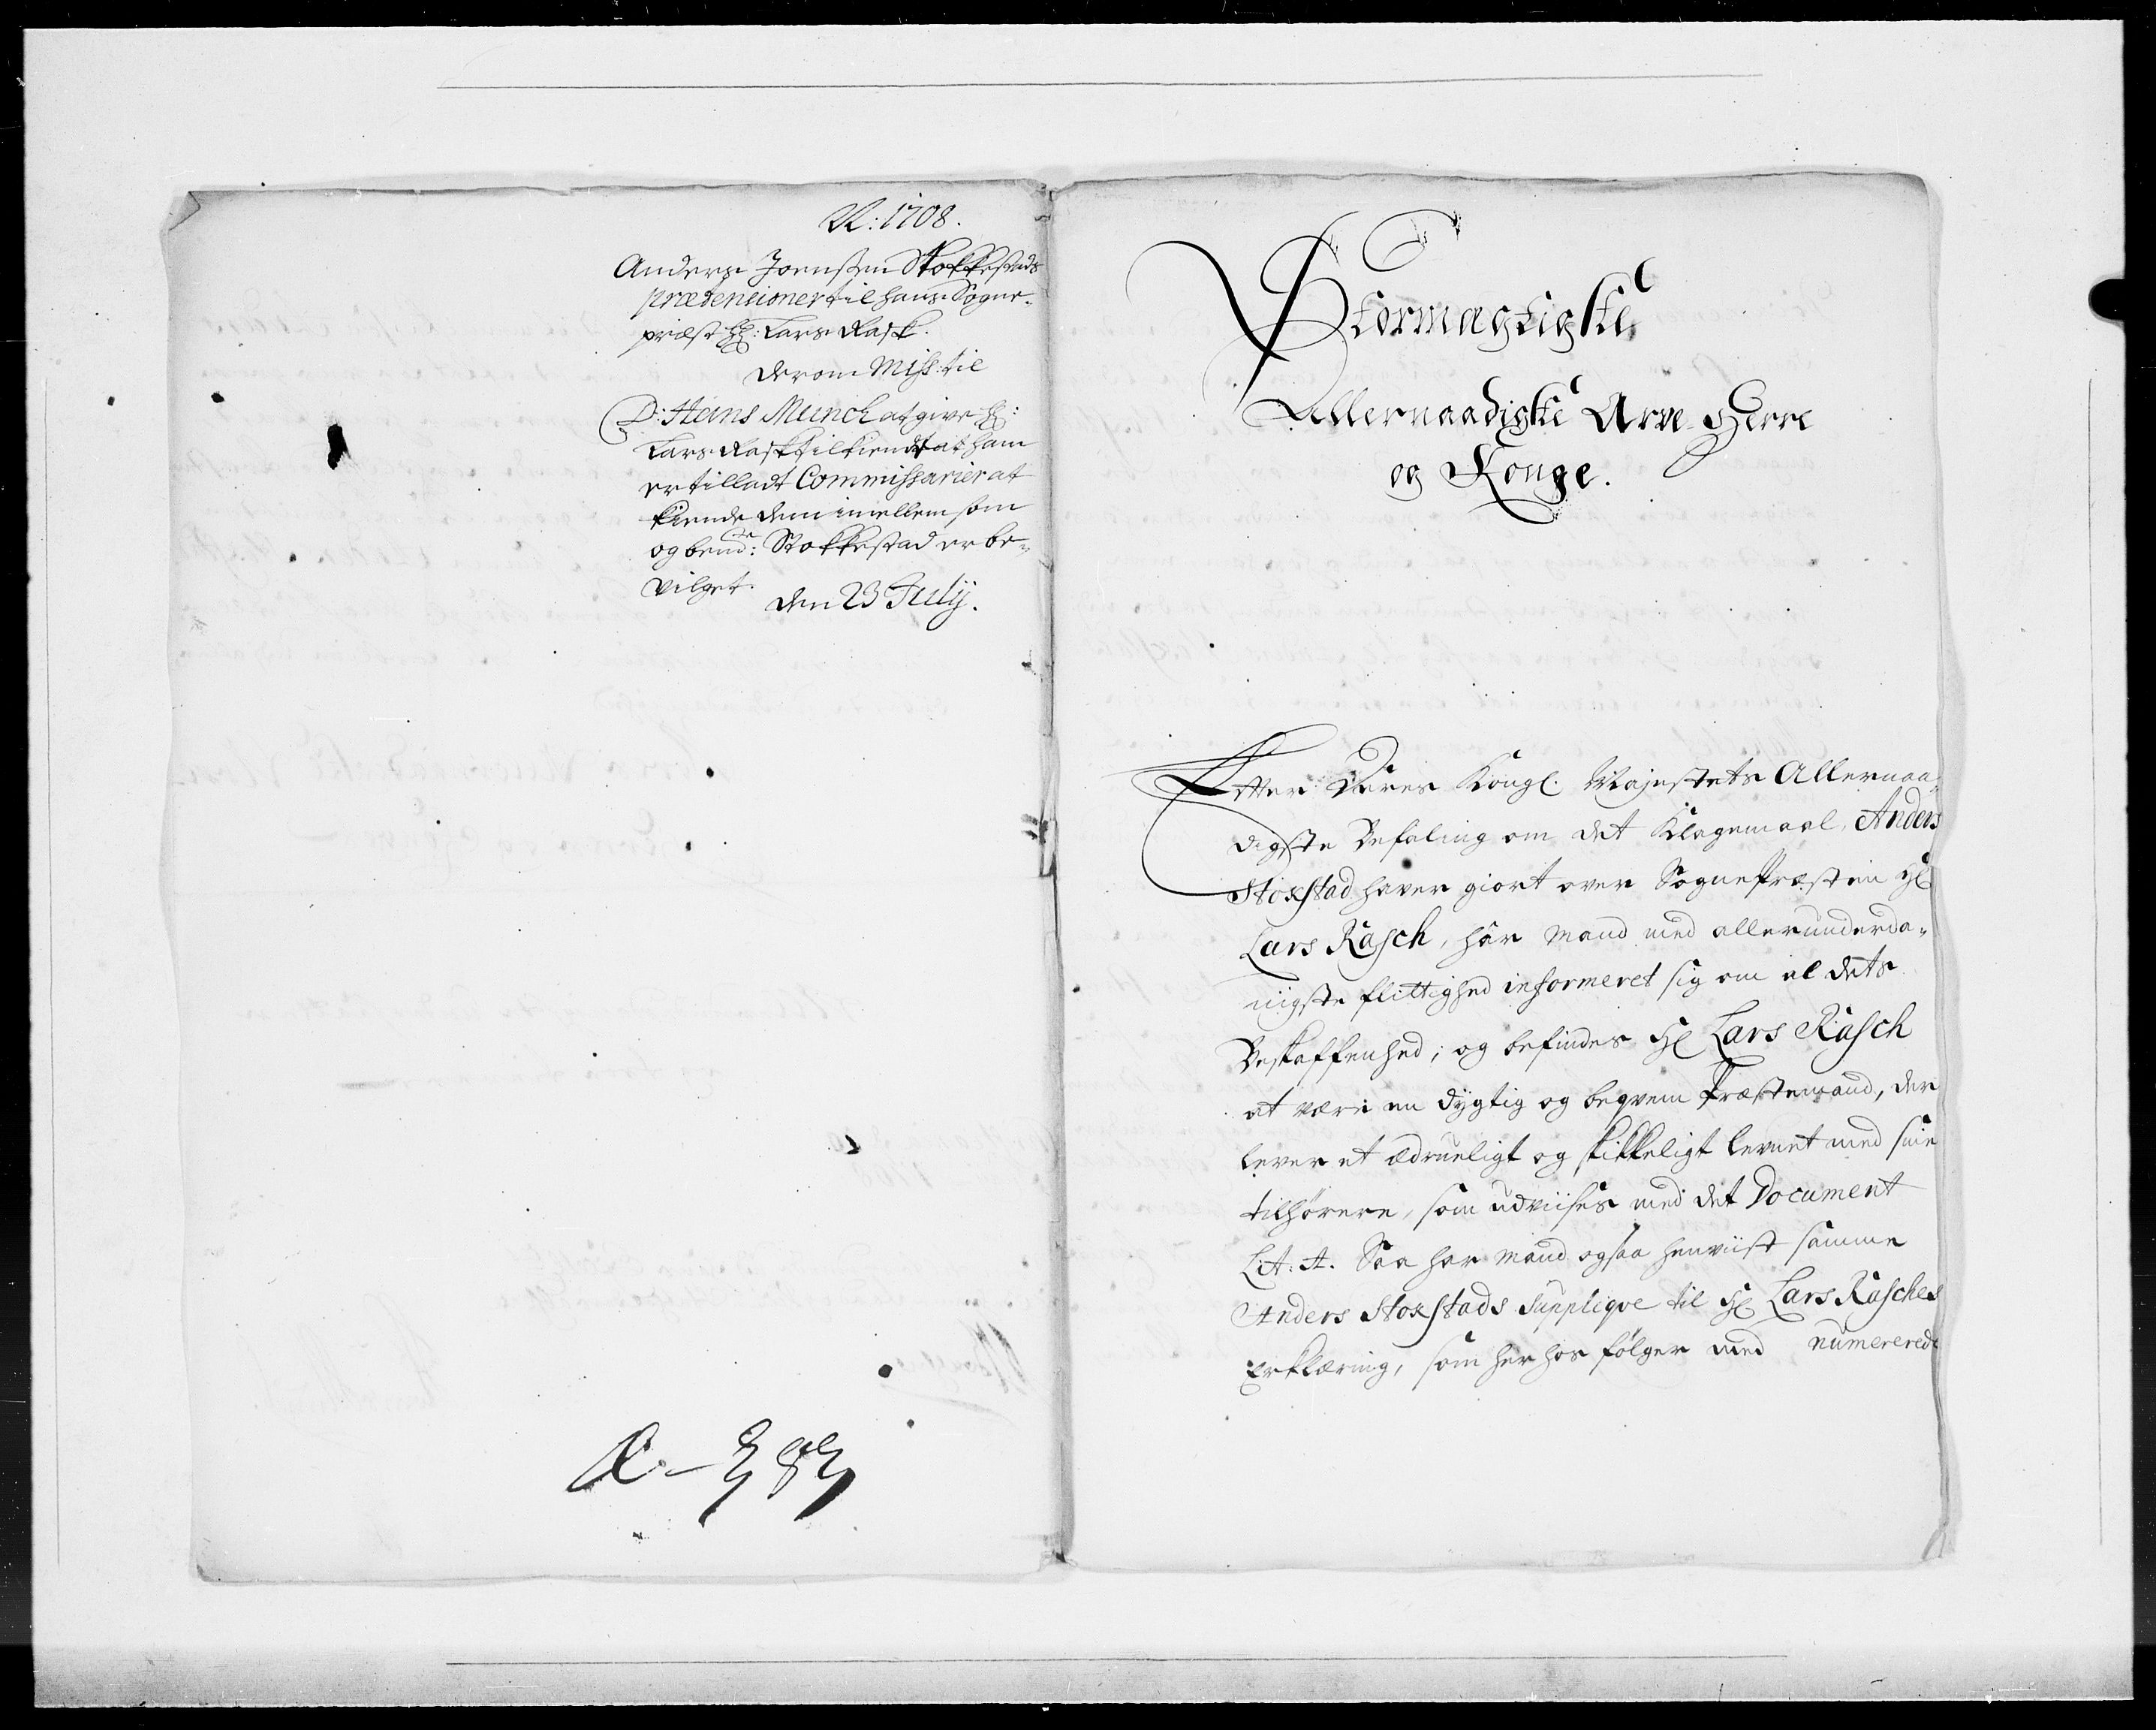 A: 1708.
Anders Joensen Stokkestads
prætensioner til hans Sogne-
præst Hr: Lars Rask.
Derom Miss: til
D: Hans Munch at give Hr:
Lars Rask tilkiende at ham
er tilladt Commissarier at
kiende dem imellem som
og bemte: Stokkestad er be-
vilget.
den 23 Julij.
Stormægtigste
Allernaadigste Arve-Herre
og Konge.
Efter Eders Kongl. Majestets Allernaa-
digste Befaling om det Klagemaal, Anders
Stoxstad haver giort over Sognepræsten Hr
Lars Rasch, har mand med allerunderda-
nigste flittighed informeret sig om al dets
Beskaffenhed; og befindes Hr Lars Rasch
at være en dygtig og beqvem Præstemand, der
lever et ædrueligt og skikkeligt levnet med sine
tilhørere, som udviises med det Document
Lit: A. Saa har mand ogsaa henviist samme
Anders Stoxstads Supplique til Hr Lars Rasches
Erklæring, som her hos følger med numererede